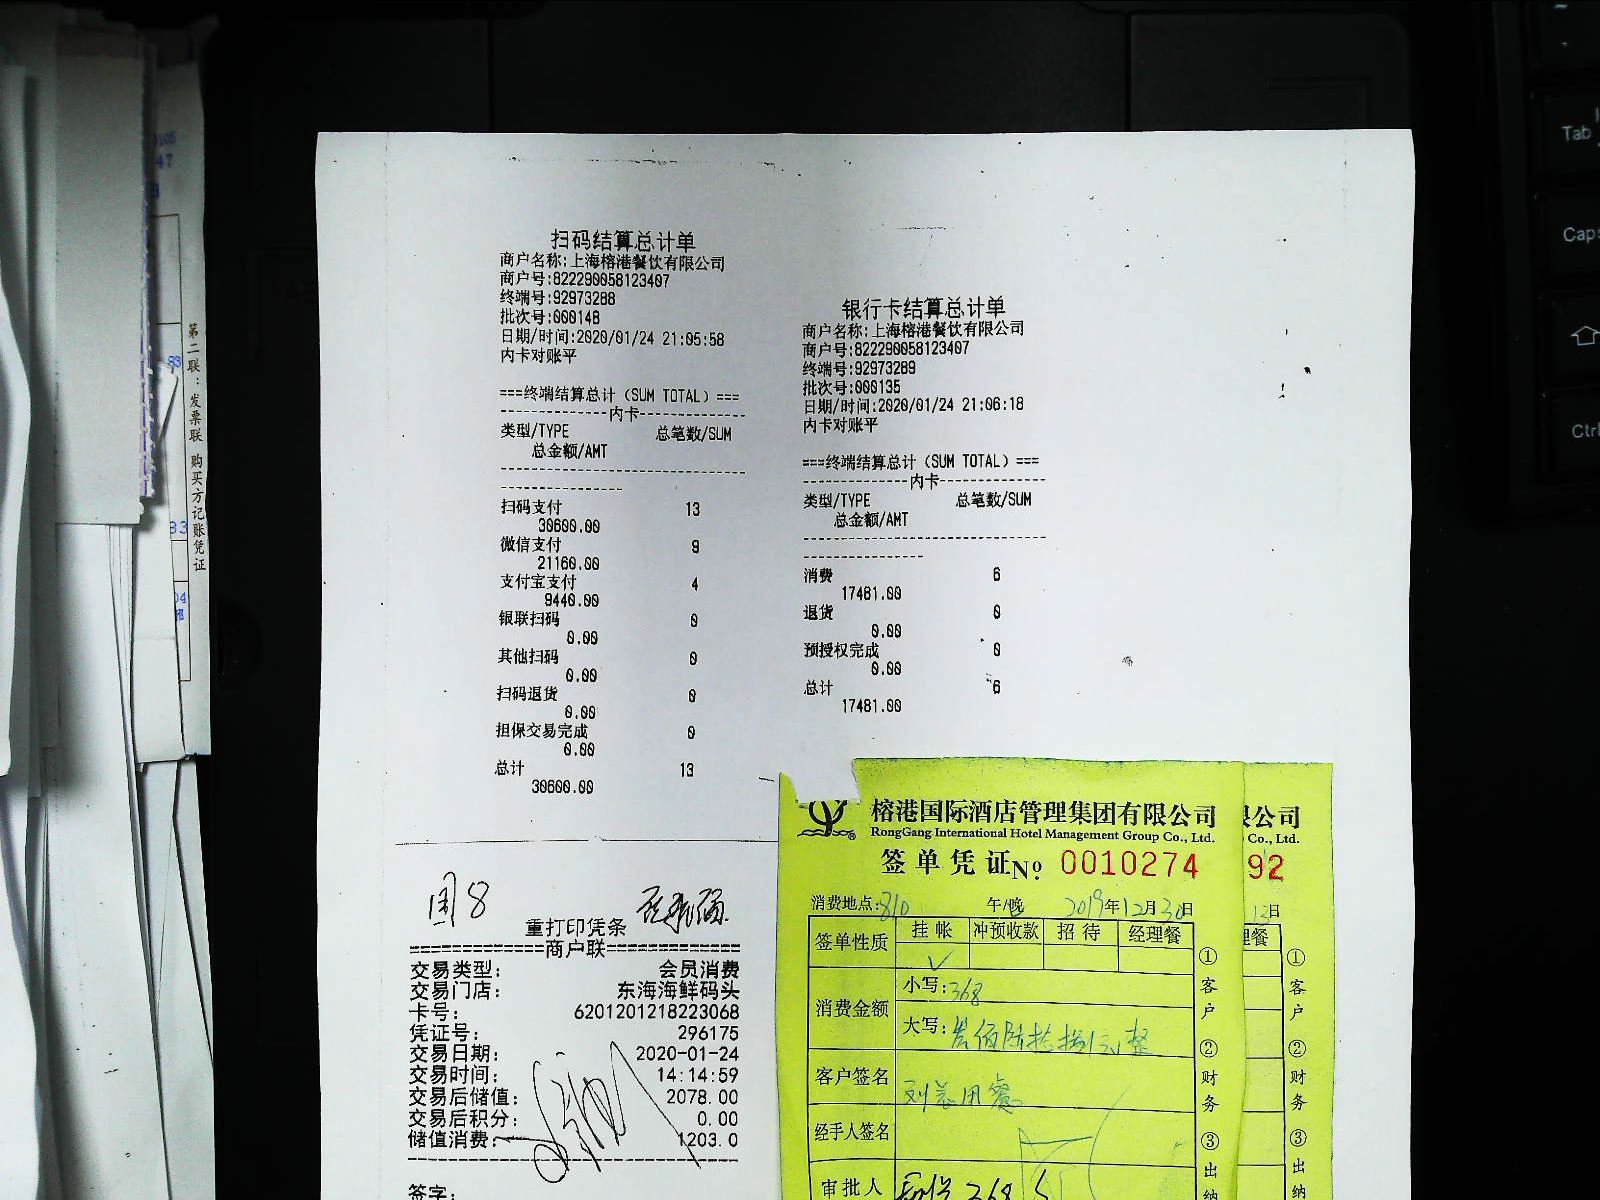 扫码结算总计单
商户名称:上海榕港餐饮有限公司
商户号:822290058123407
终端号:92973288
批次号:000148
日期/时间:2020/01/24 21:05:58
内卡对账平
===终端结算总计（SUM TOTAL）===
---------------内卡---------------
类型/TYPE 总笔数/SUM
总金额/AMT
扫码支付 13
30600.00
微信支付 9
21160.00
支付宝支付 4
9440.00
银联扫码 0
0.00
其他扫码 0
0.00
扫码退货 0
0.00
担保交易完成 0
0.00
总计 13
30600.00
银行卡结算总计单
商户名称:上海榕港餐饮有限公司
商户号:822290058123407
终端号:92973289
批次号:000135
日期/时间:2020/01/24 21:06:18
内卡对账平
===终端结算总计（SUM TOTAL）===
---------------内卡---------------
类型/TYPE 总笔数/SUM
总金额/AMT
消费 6
17481.00
退货 0
0.00
预授权完成 0
0.00
总计 6
17481.00
重打印凭条
============商户联============
交易类型: 会员消费
交易门店: 东海海鲜码头
卡号: 6201201218223068
凭证号: 296175
交易日期: 2020-01-24
交易时间: 14:14:59
交易后储值: 2078.00
交易后积分: 0.00
储值消费: 1203.0
签字:
榕港国际酒店管理集团有限公司
RongGang International Hotel Management Group Co., Ltd.
签单凭证 No 0010274
消费地点:810 午/晚 2019年12月30日
签单性质 挂帐 冲预收款 招待 经理餐
消费金额 小写:368
大写:叁佰陆拾捌元整
客户签名
经手人签名
审批人 368
①客户 ②财务 ③出纳
限公司
Co., Ltd.
92
12日
理餐
①客户 ②财务 ③出纳
第二联：发票联 购买方记账凭证
83
Tab
Caps
Ctrl